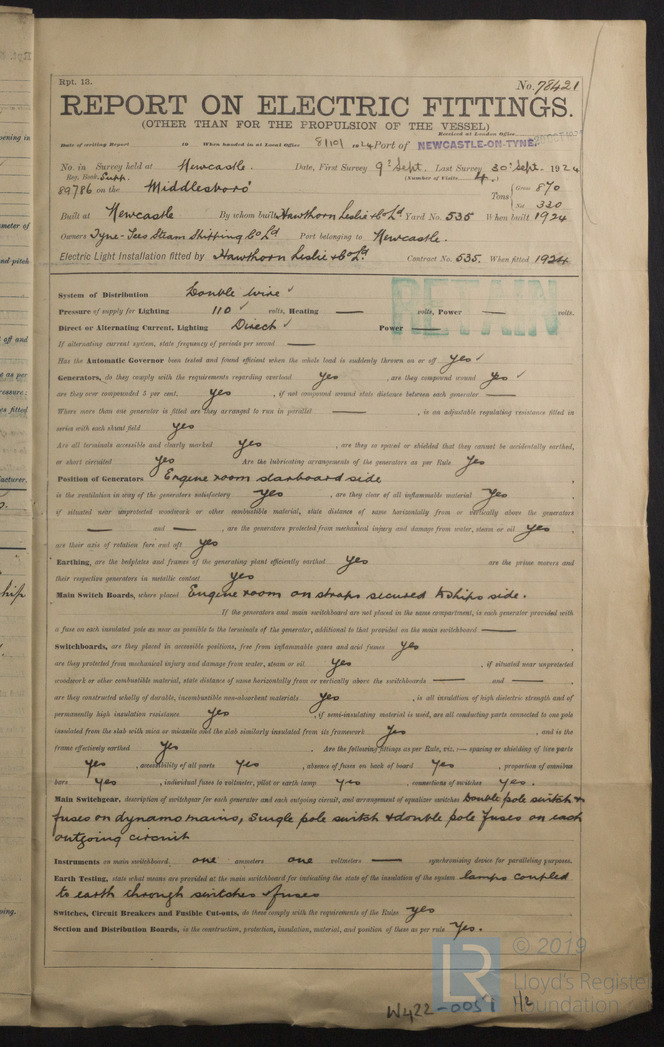 Rpt. 13.
No. 78421
REPORT ON ELECTRIC FITTINGS.
(OTHER THAN FOR THE PROPULSION OF THE VESSEL)
Received at London Office
Date of writing Report 19 When handed in at Local Office 8/10/ 1924 Port of NEWCASTLE-ON-TYNE
No. in Survey held at Newcastle. Date, First Survey 9th Sept. Last Survey 30th Sept. 1924
Reg. Book. Supp. (Number of Visits 4.)
89786 on the Middlesboro' Tons { Gross 870
Net 330
Built at Newcastle By whom built Hawthorn Leslie & Co Ld Yard No. 535 When built 1924
Owners Tyne-Tees Steam Shipping Co Ld Port belonging to Newcastle.
Electric Light Installation fitted by Hawthorn Leslie & Co Ld. Contract No. 535. When fitted 1924
RETAIN
System of Distribution Double wire
Pressure of supply for Lighting 110 volts, Heating — volts, Power — volts.
Direct or Alternating Current, Lighting Direct Power —
If alternating current system, state frequency of periods per second —
Has the Automatic Governor been tested and found efficient when the whole load is suddenly thrown on or off yes
Generators, do they comply with the requirements regarding overload yes, are they compound wound yes
are they over compounded 5 per cent. yes, if not compound wound state distance between each generator —
Where more than one generator is fitted are they arranged to run in parallel —, is an adjustable regulating resistance fitted in
series with each shunt field yes
Are all terminals accessible and clearly marked yes, are they so spaced or shielded that they cannot be accidentally earthed,
or short circuited yes Are the lubricating arrangements of the generators as per Rule yes
Position of Generators Engine room starboard side
is the ventilation in way of the generators satisfactory yes, are they clear of all inflammable material yes
if situated near unprotected woodwork or other combustible material, state distance of same horizontally from or vertically above the generators
— and —, are the generators protected from mechanical injury and damage from water, steam or oil yes,
are their axis of rotation fore and aft yes
Earthing, are the bedplates and frames of the generating plant efficiently earthed yes are the prime movers and
their respective generators in metallic contact yes
Main Switch Boards, where placed Engine room on straps secured to ships side.
If the generators and main switchboard are not placed in the same compartment, is each generator provided with
a fuse on each insulated pole as near as possible to the terminals of the generator, additional to that provided on the main switchboard —
Switchboards, are they placed in accessible positions, free from inflammable gases and acid fumes yes,
are they protected from mechanical injury and damage from water, steam or oil yes, if situated near unprotected
woodwork or other combustible material, state distance of same horizontally from or vertically above the switchboards — and —,
are they constructed wholly of durable, incombustible non-absorbent materials yes, is all insulation of high dielectric strength and of
permanently high insulation resistance yes, if semi-insulating material is used, are all conducting parts connected to one pole
insulated from the slab with mica or micanite and the slab similarly insulated from its framework yes, and is the
frame effectively earthed yes. Are the following fittings as per Rule, viz.:— spacing or shielding of live parts
yes, accessibility of all parts yes, absence of fuses on back of board yes, proportion of omnibus
bars yes, individual fuses to voltmeter, pilot or earth lamp yes, connections of switches yes.
Main Switchgear, description of switchgear for each generator and each outgoing circuit, and arrangement of equalizer switches Double pole switch &
fuses on dynamo mains, single pole switch & double pole fuses on each
outgoing circuit
Instruments on main switchboard one ammeters one voltmeters — synchronising device for paralleling purposes.
Earth Testing, state what means are provided at the main switchboard for indicating the state of the insulation of the system lamps coupled
to earth through switches & fuses
Switches, Circuit Breakers and Fusible Cut-outs, do these comply with the requirements of the Rules yes
Section and Distribution Boards, is the construction, protection, insulation, material, and position of these as per rule yes.
LR © 2019
Lloyd's Register
Foundation
W422-0051 1/2